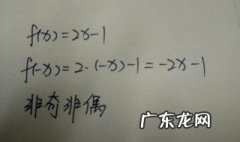 f(x)=2x-1
f(-x)=2·(-x)-1=-2x-1
非奇非偶
广东龙网